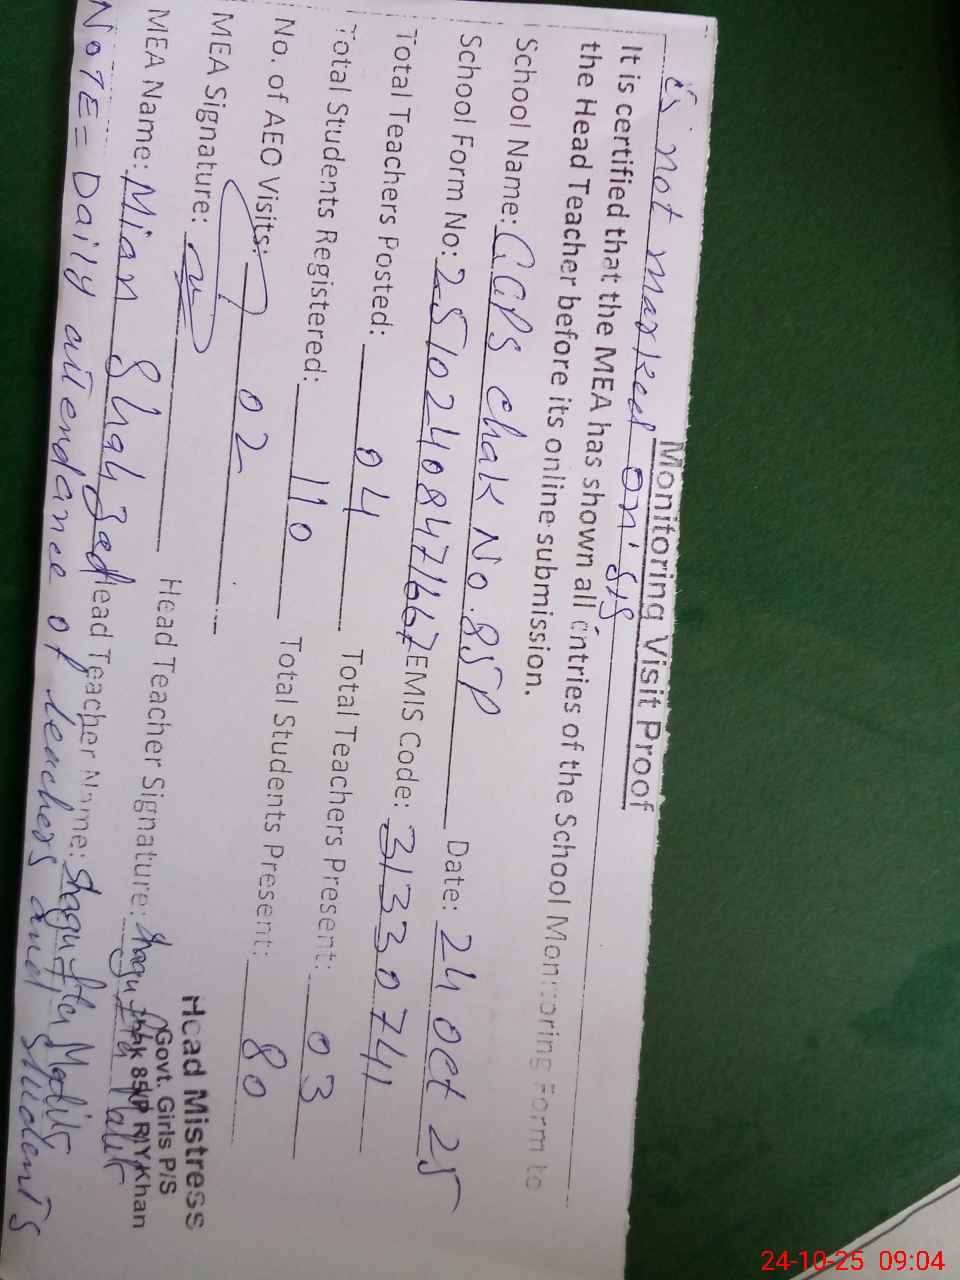 Monitoring Visit Proof
It is certified that the MEA has shown all entries of the School Monitoring Form to
the Head Teacher before its online submission.
School Name: GGPS Chak No. 85P Date: 24 Oct 25
School Form No: 25102408471667 EMIS Code: 31330741
Total Teachers Posted: 04 Total Teachers Present: 03
Total Students Registered: 110 Total Students Present: 80
No. of AEO Visits: 02
MEA Signature: Head Teacher Signature: Shagufta Malik
MEA Name: Mian Shahzad Head Teacher Name: Shagufta Malik
Head Mistress
Govt. Girls P/S
Chak 85/P R.Y.Khan
NOTE= Daily attendance of teachers and students
is not marked on SIS
24-10-25 09:04